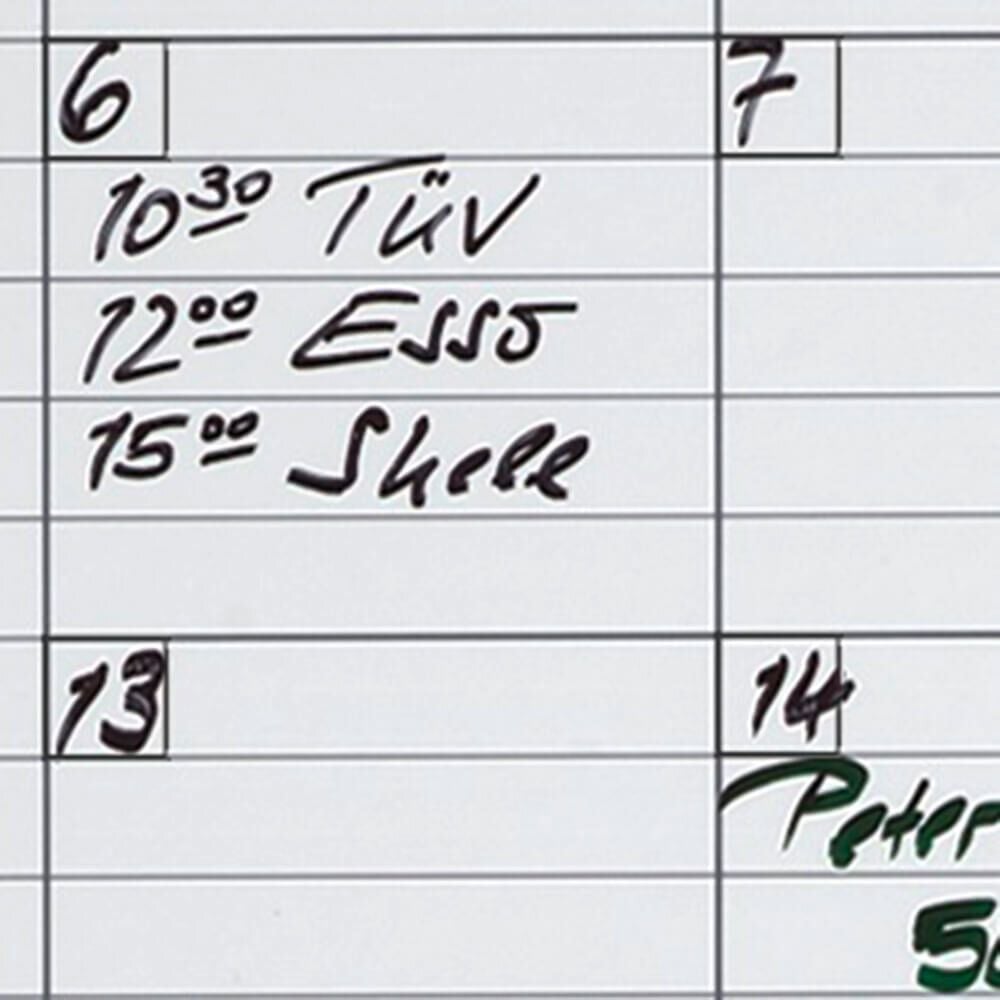 6
7
10³⁰ TÜV
12⁰⁰ ESSO
15⁰⁰ Shell
13
14
Peter